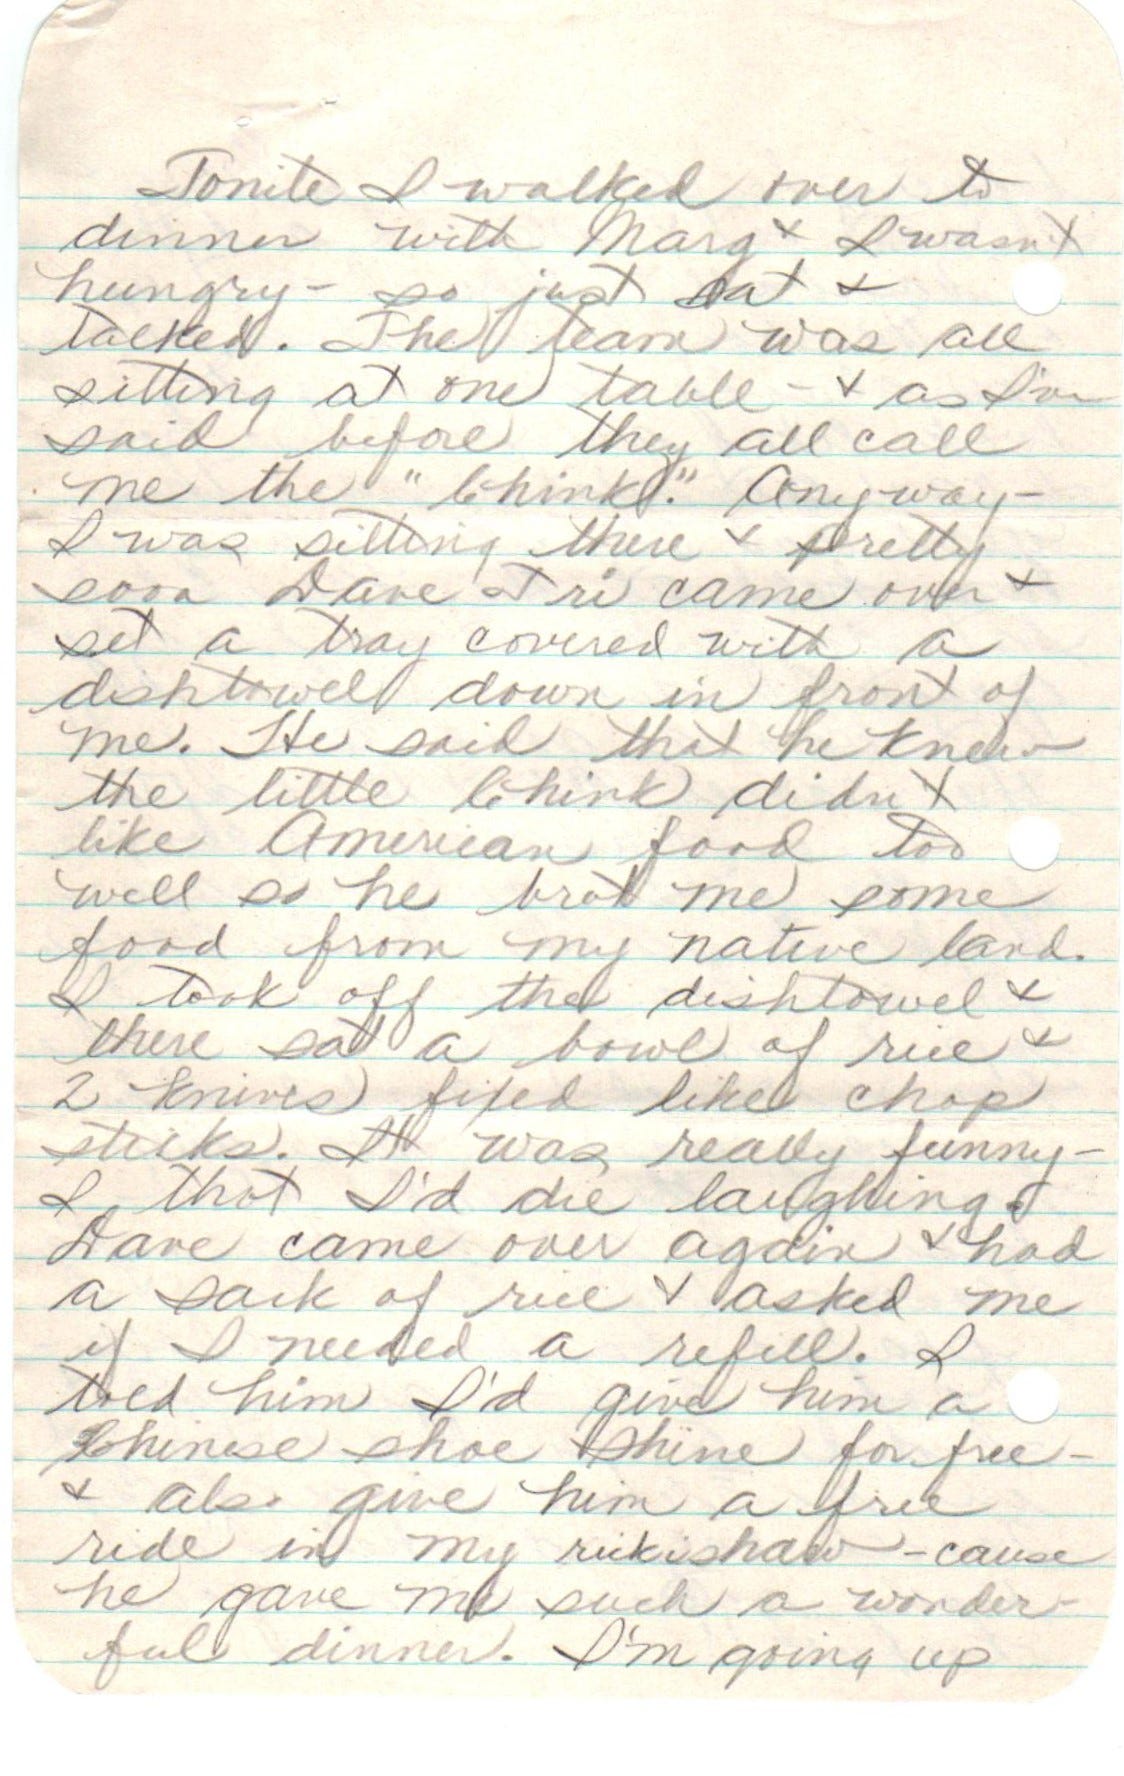 Tonite I walked over to
dinner with Marg & I wasn't
hungry - so just sat &
talked. The team was all
sitting at one table - & as I've
said before they all call
me the "Chink". Anyway -
I was sitting there & pretty
soon Dave came over &
set a tray covered with a
dishtowel down in front of
me. He said that he knew
the little Chink didn't
like American food too
well so he brot me some
food from my native land.
I took off the dishtowel &
there sat a bowl of rice &
2 knives fixed like chop
sticks. It was really funny -
I thot I'd die laughing.
Dave came over again & had
a sack of rice & asked me
if I needed a refill. I
told him I'd give him a
Chinese shoe shine for free -
& also give him a free
ride in my rickishaw - cause
he gave me such a wonder-
ful dinner. I'm going up